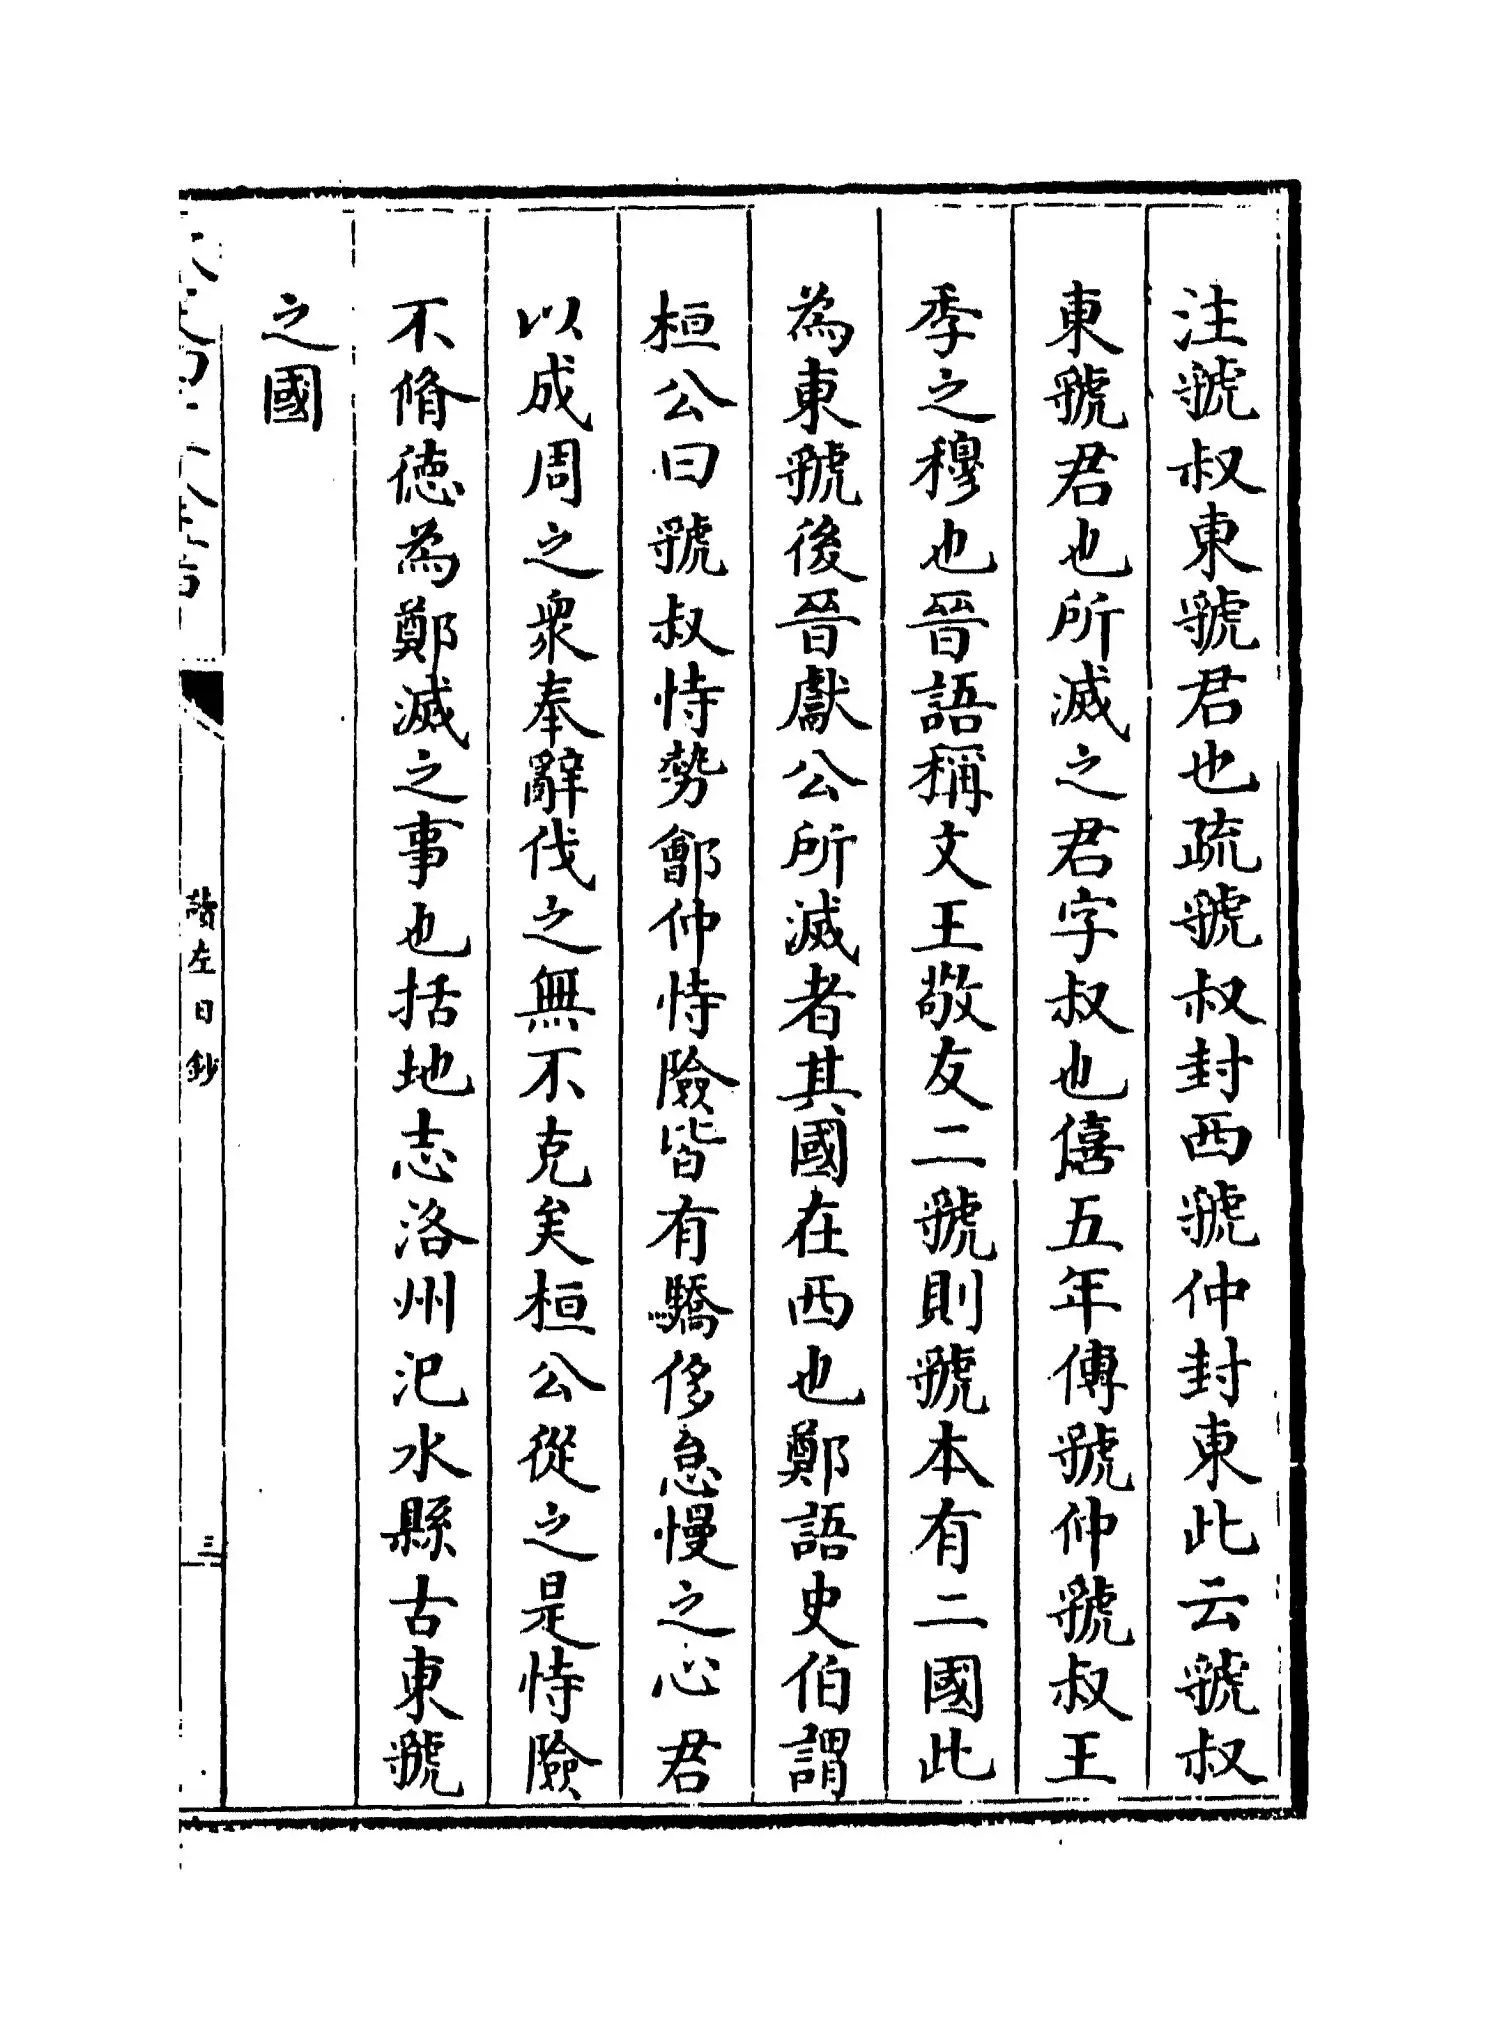 注虢叔東虢君也疏虢叔封西虢仲封東此云虢叔
東虢君也所滅之君字叔也僖五年傳虢仲虢叔王
季之穆也晉語稱文王敬友二虢則虢本有二國此
為東虢後晉獻公所滅者其國在西也鄭語史伯謂
桓公曰虢叔恃勢鄶仲恃險皆有驕侈怠慢之心君
以成周之衆奉辭伐之無不克矣桓公從之是恃險
不脩徳為鄭滅之事也括地志洛州汜水縣古東虢
之國
讀左日鈔
三